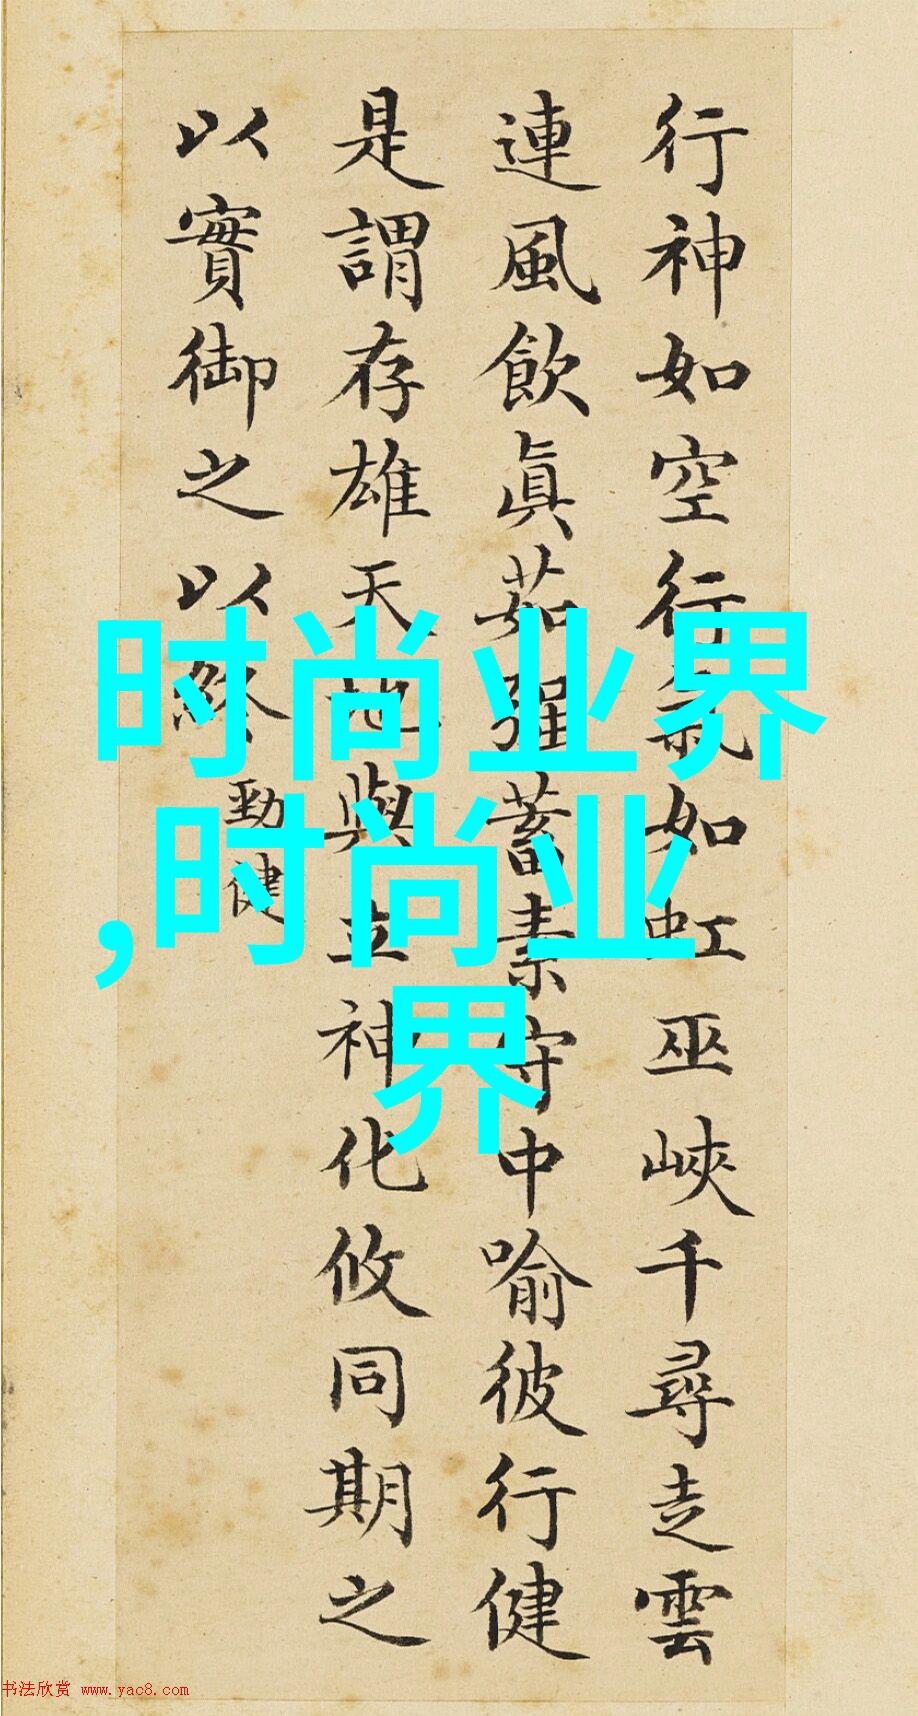 行神如空行氣如虹巫峽千尋走雲
連風飲眞茹强蓄素守中喻彼行健
是謂存雄天地與立神化攸同期之
以實御之以終
勁健
时尚业界
,时尚业
界
书法欣赏 www.yac8.com